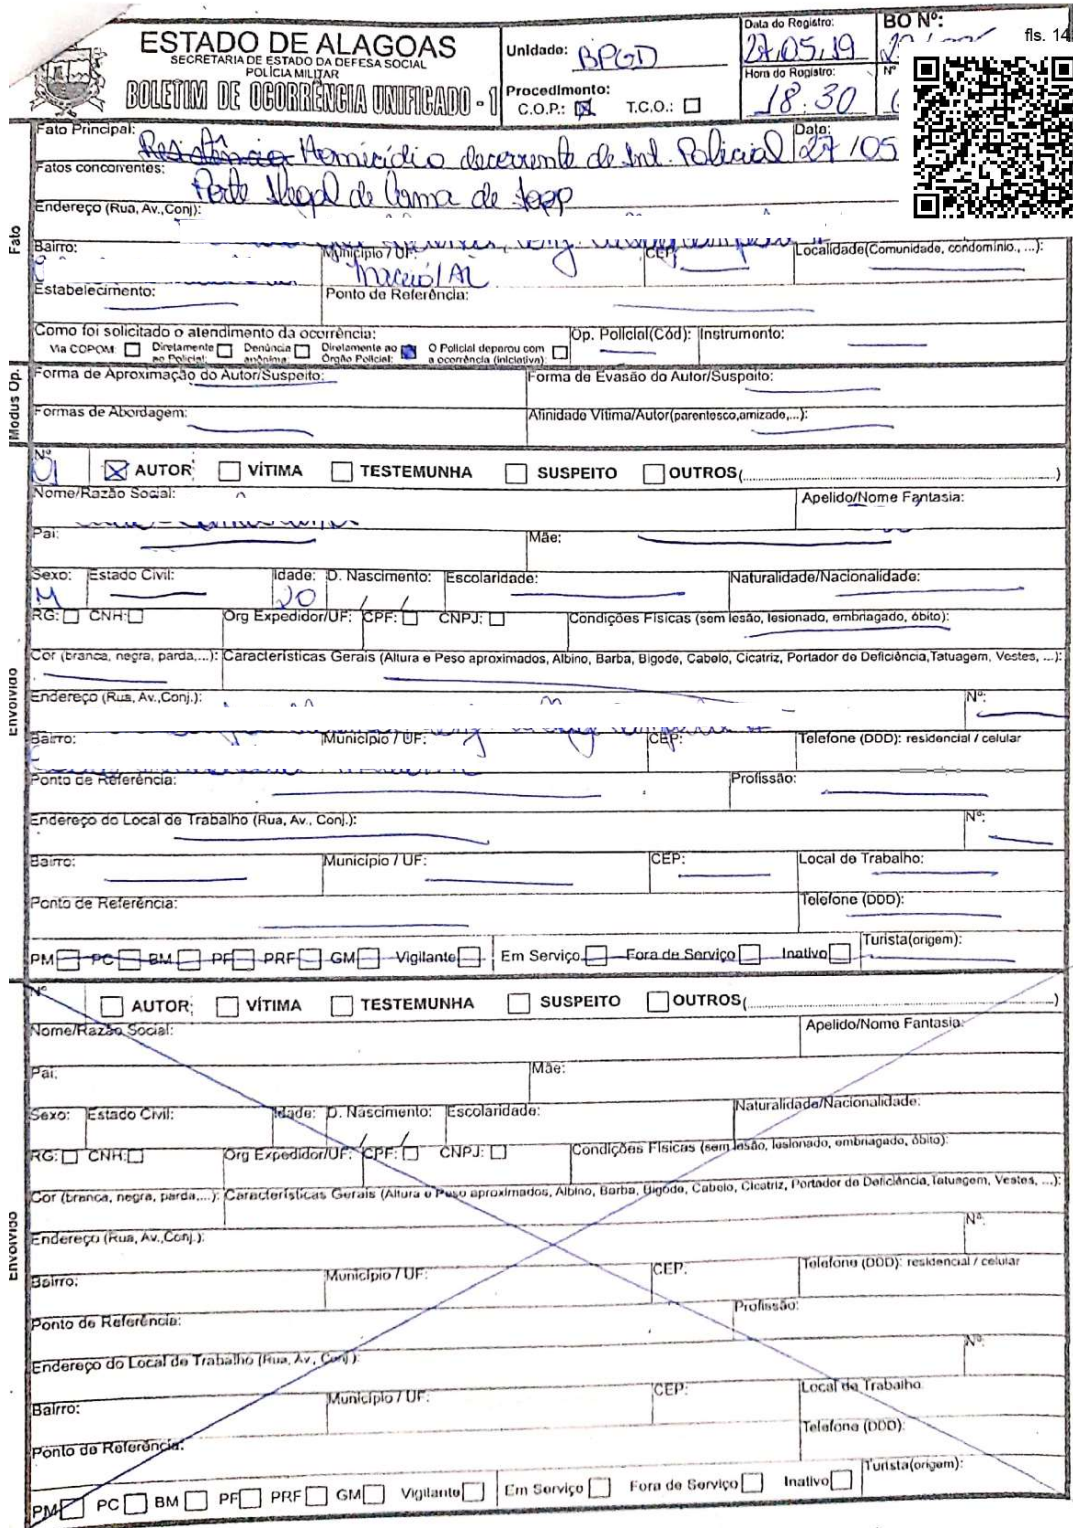 ESTADO DE ALAGOAS
SECRETARIA DE ESTADO DA DEFESA SOCIAL
POLÍCIA MILITAR
BOLETIM DE OCORRÊNCIA UNIFICADO - 1
Unidade: BPGD
Procedimento:
C.O.P.: T.C.O.:
Data do Registro:
27.05.19
Hora do Registro:
18:30
BO Nº:
Nº
fls. 14
Fato
Fato Principal: Resistência Homicídio decorrente de Int. Policial
Data: 27/05
Fatos concorrentes: Porte Ilegal de Arma de
Endereço (Rua, Av.,Conj):
Bairro: Município / UF: Maceió/AL CEP: Localidade(Comunidade, condomínio., ...):
Estabelecimento: Ponto de Referência:
Como foi solicitado o atendimento da ocorrência: Op. Policial(Cód): Instrumento:
Via COPOM Diretamente ao Policial: Denúncia anônima: Diretamente ao Órgão Policial: O Policial deparou com a ocorrência (iniciativa):
Modus Op.
Forma de Aproximação do Autor/Suspeito: Forma de Evasão do Autor/Suspeito:
Formas de Abordagem: Afinidade Vítima/Autor(parentesco,amizade,...):
Envolvido
Nº 01 AUTOR: VÍTIMA TESTEMUNHA SUSPEITO OUTROS(..........)
Nome/Razão Social: Apelido/Nome Fantasia:
Pai: Mãe:
Sexo: M Estado Civil: Idade: 20 D. Nascimento: / / Escolaridade: Naturalidade/Nacionalidade:
RG: CNH: Org Expedidor/UF: CPF: CNPJ: Condições Físicas (sem lesão, lesionado, embriagado, óbito):
Cor (branca, negra, parda,...): Características Gerais (Altura e Peso aproximados, Albino, Barba, Bigode, Cabelo, Cicatriz, Portador de Deficiência,Tatuagem, Vestes, ...):
Endereço (Rua, Av.,Conj.): Nº:
Bairro: Município / UF: CEP: Telefone (DDD): residencial / celular
Ponto de Referência: Profissão:
Endereço do Local de Trabalho (Rua, Av., Conj.): Nº:
Bairro: Município / UF: CEP: Local de Trabalho:
Ponto de Referência: Telefone (DDD):
PM PC BM PF PRF GM Vigilante Em Serviço Fora de Serviço Inativo Turista(origem):
Envolvido
Nº AUTOR: VÍTIMA TESTEMUNHA SUSPEITO OUTROS(..........)
Nome/Razão Social: Apelido/Nome Fantasia:
Pai: Mãe:
Sexo: Estado Civil: Idade: D. Nascimento: / / Escolaridade: Naturalidade/Nacionalidade:
RG: CNH: Org Expedidor/UF: CPF: CNPJ: Condições Físicas (sem lesão, lesionado, embriagado, óbito):
Cor (branca, negra, parda,...): Características Gerais (Altura e Peso aproximados, Albino, Barba, Bigode, Cabelo, Cicatriz, Portador de Deficiência,Tatuagem, Vestes, ...):
Endereço (Rua, Av.,Conj.): Nº:
Bairro: Município / UF: CEP: Telefone (DDD): residencial / celular
Ponto de Referência: Profissão:
Endereço do Local de Trabalho (Rua, Av., Conj.): Nº:
Bairro: Município / UF: CEP: Local de Trabalho:
Ponto de Referência: Telefone (DDD):
PM PC BM PF PRF GM Vigilante Em Serviço Fora de Serviço Inativo Turista(origem):